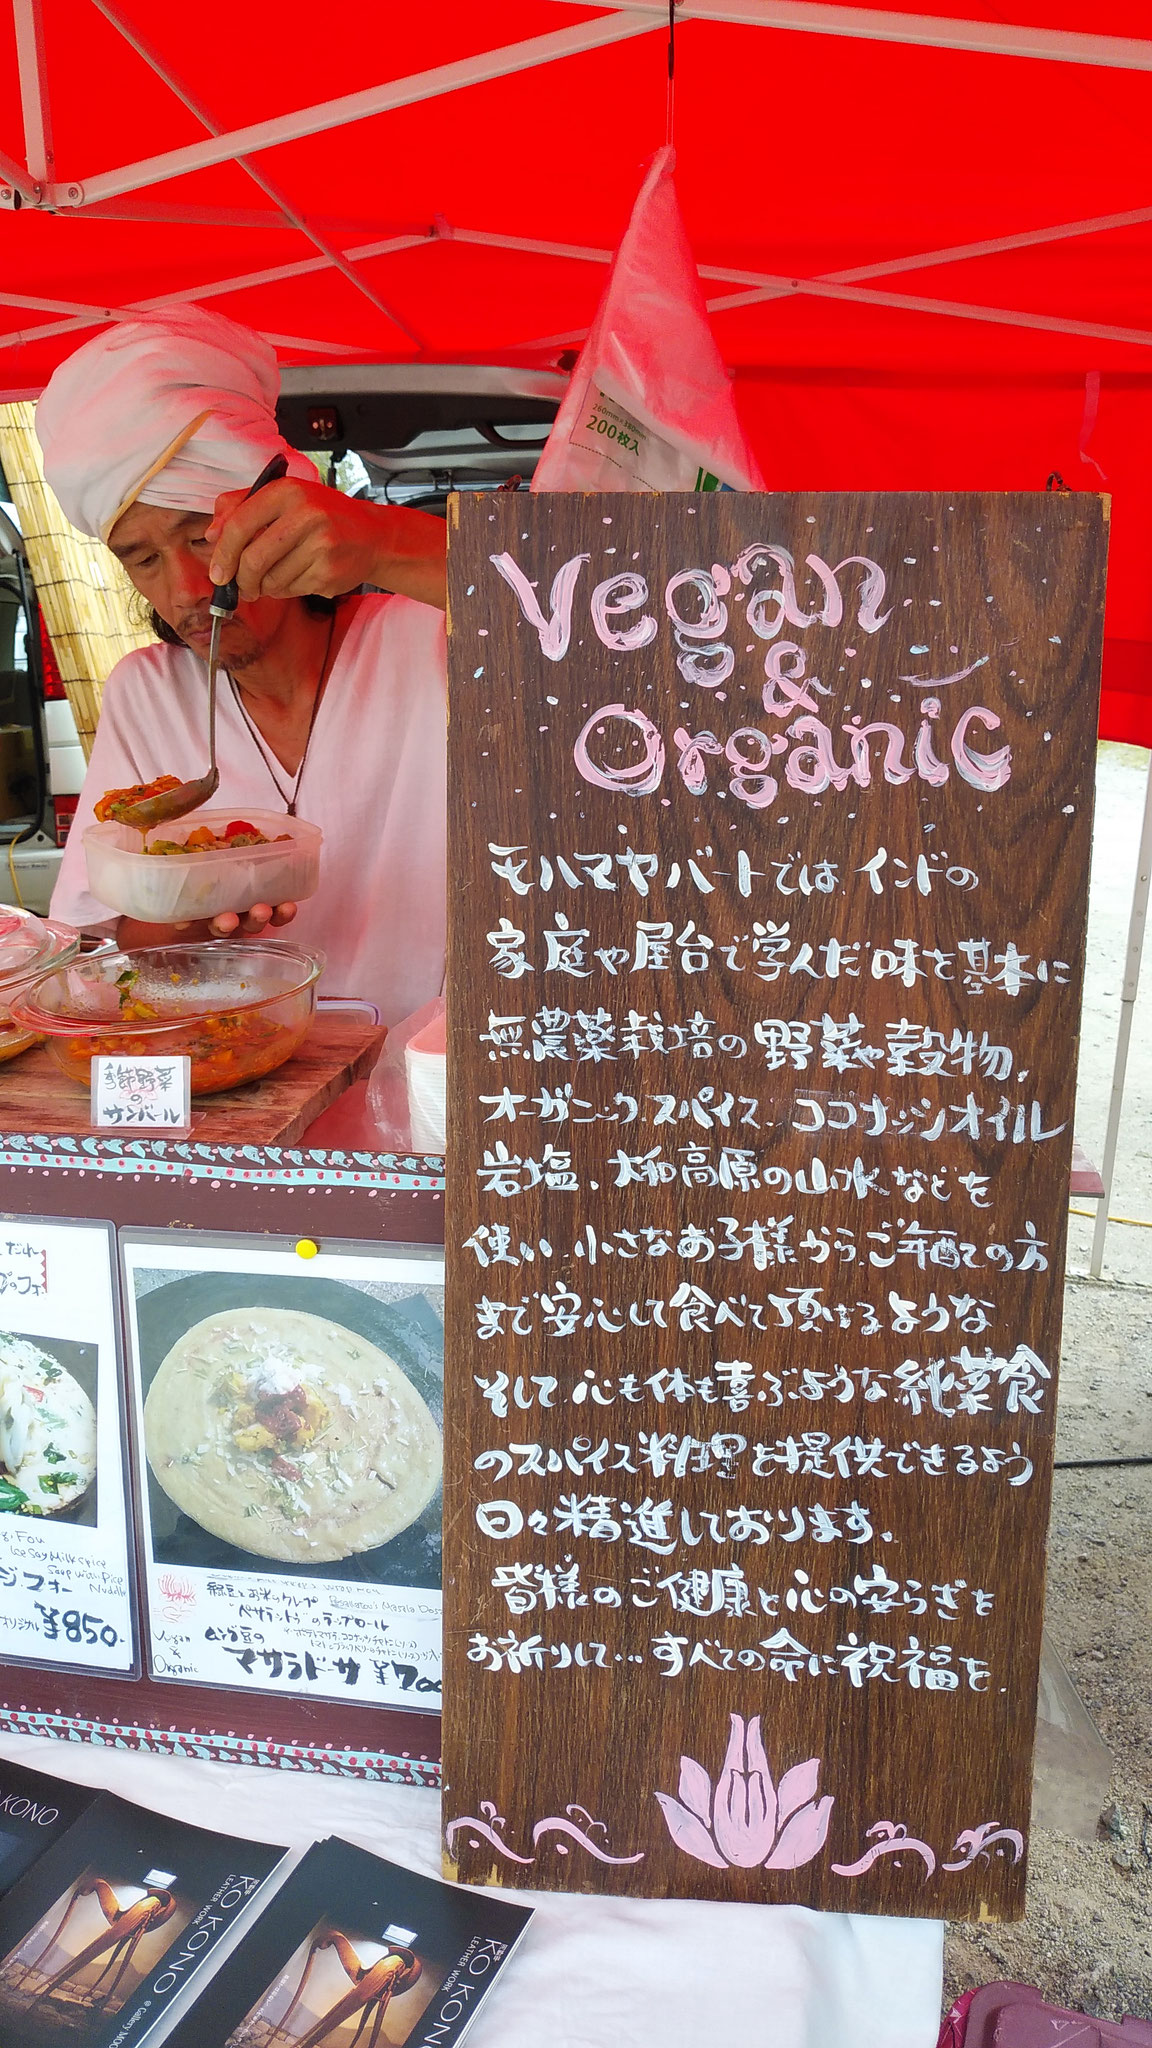 260mm×380mm
200枚入
Vegan
&
Organic
モハマヤバートでは、インドの
家庭や屋台で学んだ味を基本に
無農薬栽培の野菜や穀物、
オーガニックスパイス、ココナッツオイル
岩塩、大和高原の山水などを
使い、小さなお子様から、ご年配の方
まで安心して食べて頂けるような
そして、心も体も喜ぶような純菜食
のスパイス料理を提供できるよう
日々精進しております。
皆様のご健康と心の安らぎを
お祈りして…すべての命に祝福を。
季節野菜
の
サンバール
だれ
のフォ
Fou
Soy Milk spice
Soup with Rice
Noodle
フォー
オリジナル ¥850-
緑豆とお米のクレープ
"ペサラットゥ"のラップロール
Vegan
&
Organic
ムング豆の
マサラドーサ ¥700
KONO
KŌ KONO
LEATHER WORK
@ Gallery MOO
KŌ KONO
LEATHER WORK